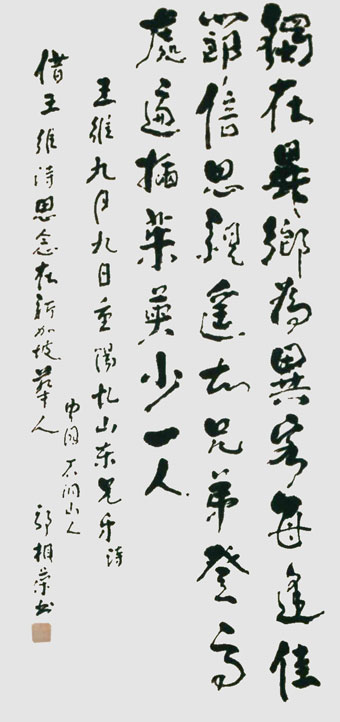 獨在異鄉為異客每逢佳
節倍思親遙知兄弟登高
處遍插茱萸少一人
王維九月九日重陽憶山東兄弟詩
借王維詩思念在新加坡華人
中國石澗山人
郭相榮書